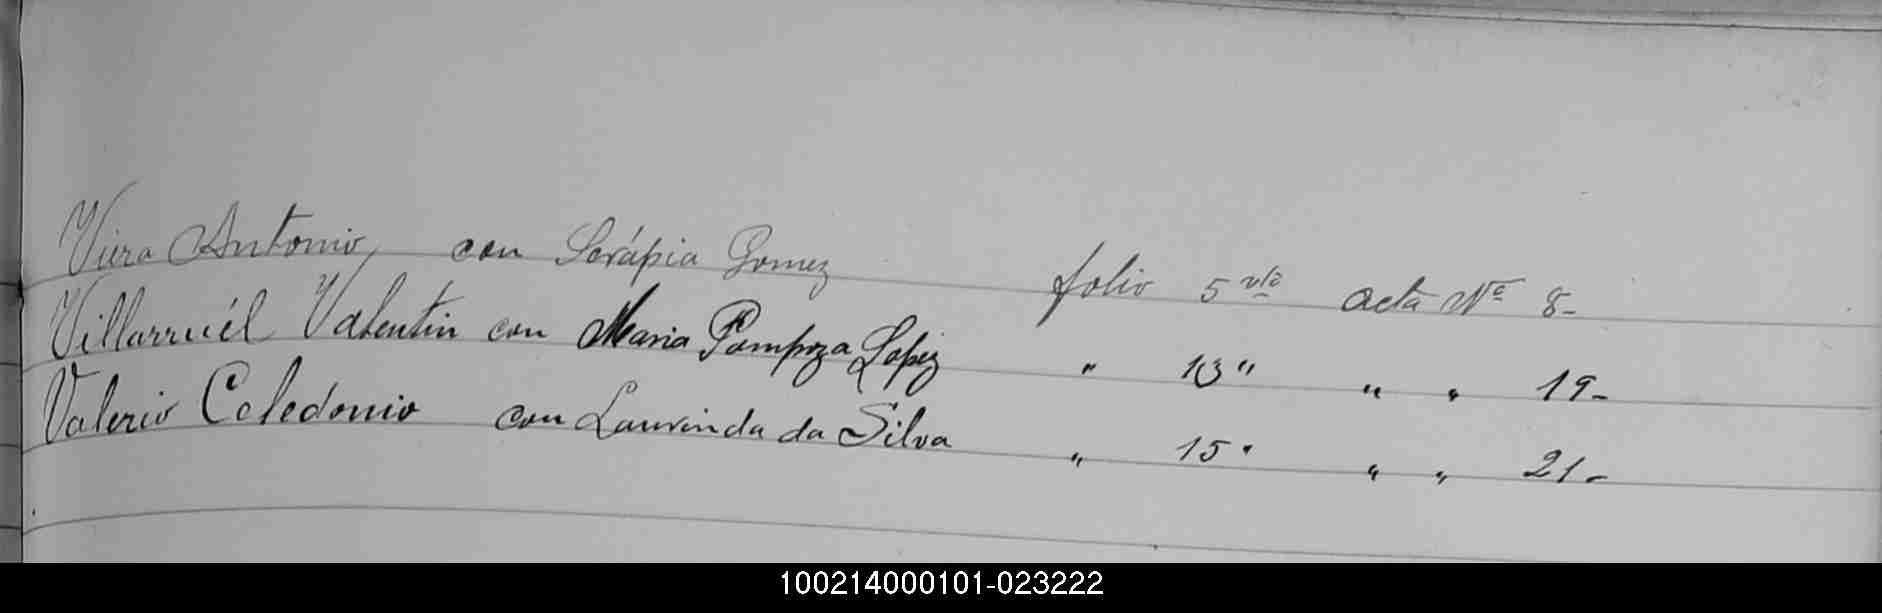 Viera Antonio, con Serápia Gomez folio 5 vto acta No 8-
Villarruél Valentin con Maria Pampoza Lopez " 13 " " " 19-
Valerio Celedonio con Laurinda da Silva " 15 " " " 21-
100214000101-023222